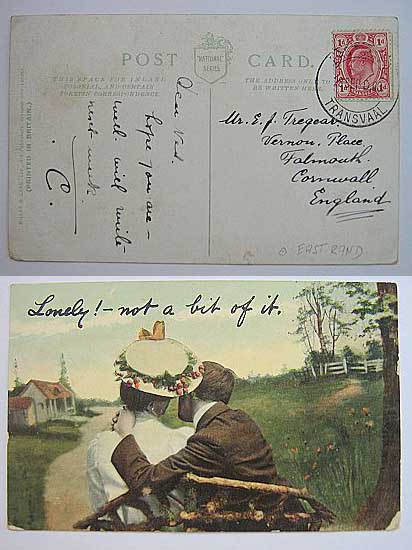 POST CARD.
NATIONAL
SERIES
THIS SPACE FOR INLAND,
COLONIAL, AND CERTAIN
FOREIGN CORRESPONDENCE.
THE ADDRESS ONLY TO
BE WRITTEN HERE.
(PRINTED IN BRITAIN.)
Dear
hope you are
well. will write
next week
C.
Mr. E. J. Tregear
Vernon Place,
Falmouth.
Cornwall.
England
1d 1d
TRANSVAAL
EAST RAND
Lonely! – not a bit of it.